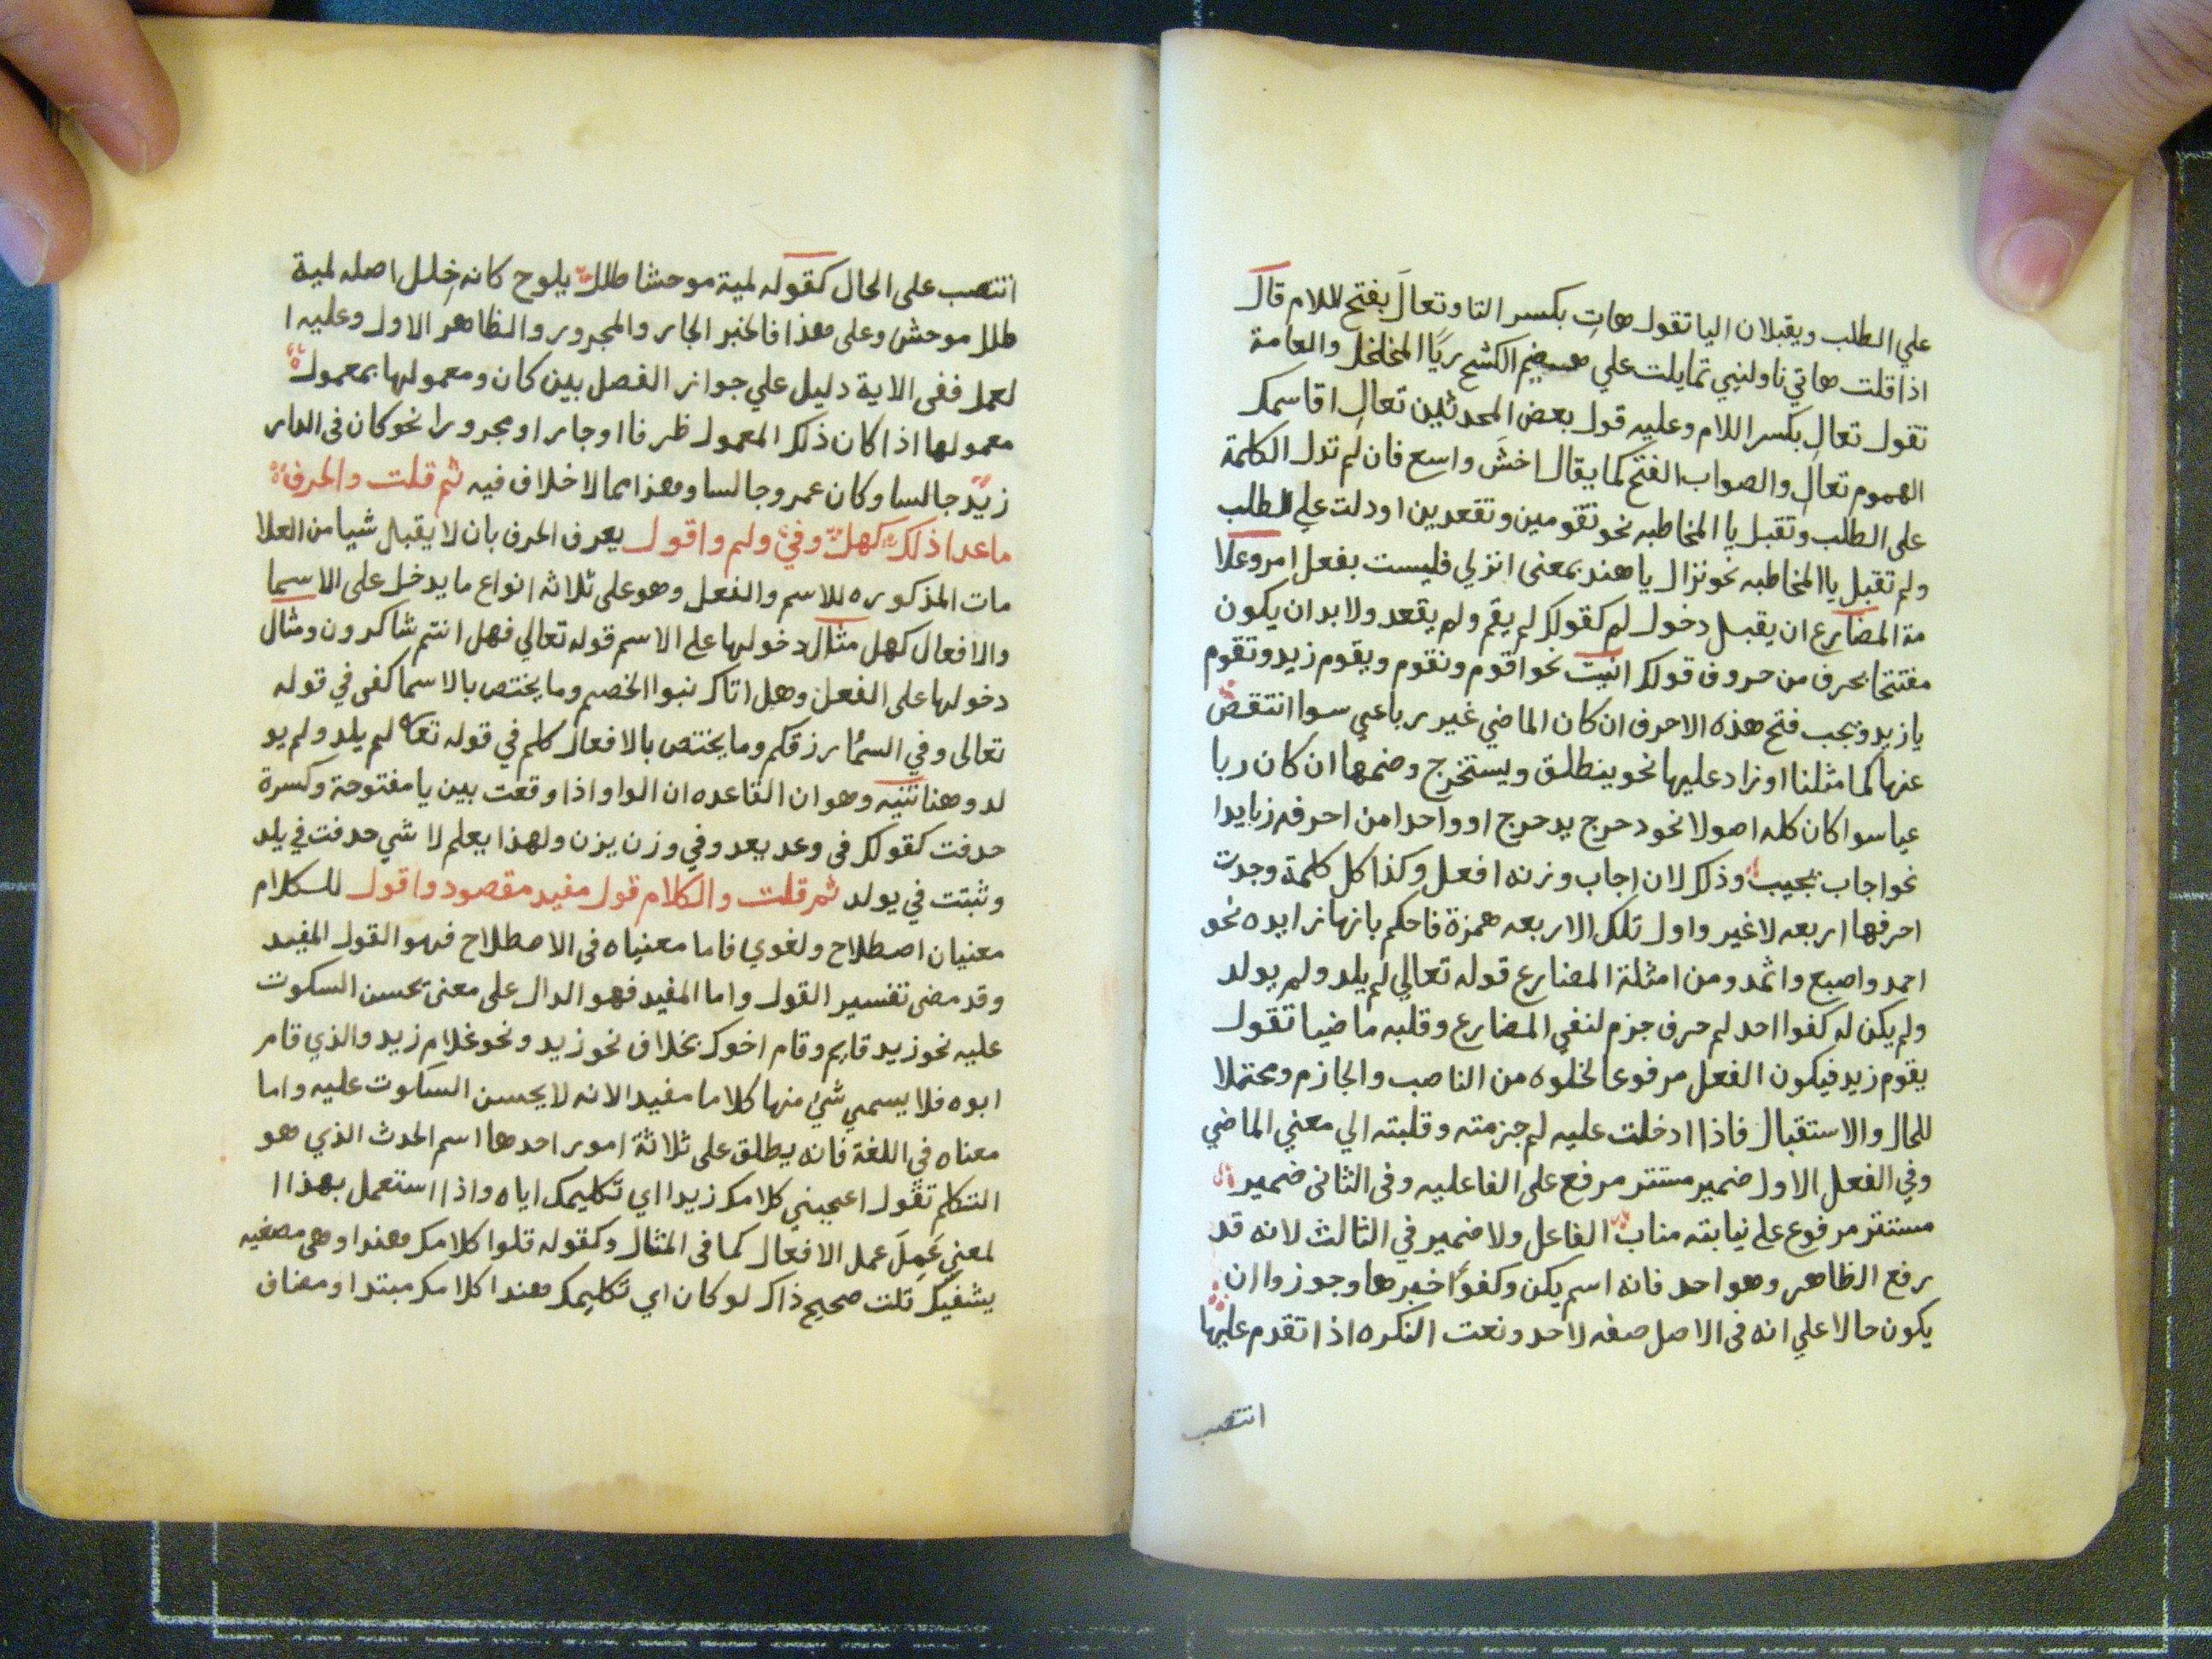 علي الطلب ويقبلان اليا تقول هاتِ بكسر التا وتعالَ بفتح اللام قال
اذا قلت هاتي ناولنيي تمايلت علي هضيم الكشح ريًا المخلخل والعامة
تقول تعالِ بكسر اللام وعليه قول بعض المحدثين تعالِ اقاسمك
الهموم تعالِ والصواب الفتح كما يقال اخشَ واسع فان لم تدل الكلمة
على الطلب وتقبل يا المخاطبه نحو تقومين وتقعدين او دلت علي الطلب
ولم تقبل يا المخاطبه نحو نزال يا هند بمعنى انزلي فليست بفعل امر وعلا
مة المضارع ان يقبل دخول لم كقولك لم يقم ولم يقعد ولا بد ان يكون
مفتتحا بحرف من حروف قولك انيت نحو اقوم ونقوم ويقوم زيد وتقوم
يا زيد ويجب فتح هذه الاحرف ان كان الماضي غير رباعي سوا انتقص
عنها كما مثلنا او زاد عليها نحو ينطلق ويستخرج وضمها ان كان ربا
عيا سوا كان كله اصولا نحو دحرج يدحرج او واحدا من احرفه زايدا
نحو اجاب يجيب وذلك لان اجاب وزنه افعل وكذا كل كلمة وجدت
احرفها اربعه لا غير واول تلك الاربعه همزة فاحكم بانها زايده نحو
احمد واصبع واثمد ومن امثلة المضارع قوله تعالي لم يلد ولم يولد
ولم يكن له كفوا احد لم حرف جزم لنفي المضارع وقلبه ماضيا تقول
يقوم زيد فيكون الفعل مرفوعا لخلوه من الناصب والجازم ومحتملا
للحال والاستقبال فاذا ادخلت عليه لم جزمته وقلبته الي معني الماضي
وفي الفعل الاول ضمير مستتر مرفع على الفاعليه وفى الثانى ضمير
مستتر مرفوع علي نيابته مناب الفاعل ولا ضمير في الثالث لانه قد
رفع الظاهر وهو احد فانه اسم يكن وكفوًا خبرها وجوزوا ان
يكون حالا علي انه فى الاصل صفه لاحد ونعت النكره اذا تقدم عليها
انتصب
انتصب على الحال كقوله لمية موحشا طلل يلوح كانه خِلل اصله لمية
طلل موحش وعلى هذا فالخبر الجار والمجرور والظاهر الاول وعليه ا
لعمل ففى الاية دليل علي جواز الفصل بين كان ومعمولها بمعمول
معمولها اذا كان ذلك المعمول ظرفا او جارا ومجرورا نحو كان فى الدار
زيد جالسا وكان عمرو جالسا وهذا مما لا خلاف فيه ثم قلت والحرف
ما عدا ذلك كهل وفي ولم واقول يعرف الحرف بان لا يقبل شيا من العلا
مات المذكوره للاسم والفعل وهو على ثلاثه انواع ما يدخل على الاسما
والافعال كهل مثال دخولها علي الاسم قوله تعالي فهل انتم شاكرون ومثال
دخولها على الفعل وهل اتاك نبوا الخصم وما يختص بالاسما كفى في قوله
تعالى وفي السمٰا رزقكم وما يختص بالافعال كلم في قوله تعا لم يلد ولم يو
لد وهنا تنبيه وهو ان القاعده ان الواو اذا وقعت بين يا مفتوحة وكسرة
حدفت كقولك فى وعد يعد وفي وزن يزن ولهذا يعلم لاي شي حدفت في يلد
وثبتت في يولد ثم قلت والكلام قول مفيد مقصود واقول للكلام
معنيان اصطلاح ولغوي فاما معنياه فى الاصطلاح فهو القول المفيد
وقد مضى تفسير القول واما المفيد فهو الدال على معنى يحسن السكوت
عليه نحو زيد قايم وقام اخوك بخلاف نحو زيد ونحو غلام زيد والذي قام
ابوه فلا يسمي شي منها كلاما مفيدا لانه لا يحسن السكوت عليه واما
معناه في اللغة فانه يطلق على ثلاثة امور احدها اسم الحدث الذي هو
التكلم تقول اعجبني كلامك زيدا اي تكليمك اياه واذا استعمل بهذا ا
لمعني عَمِلَ عمل الافعال كما فى المثال وكقوله قلوا كلامك هندا وهى مصغيه
يشفيك قلت صحيح ذاك لو كان اي تكليمك هندا كلامك مبتدا ومضاف